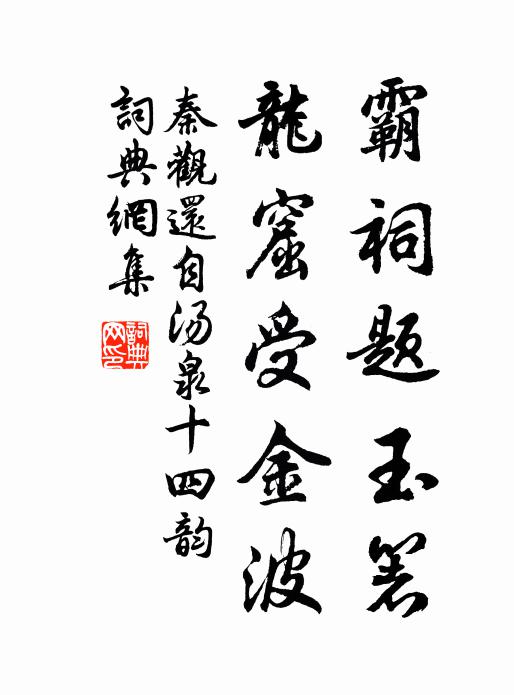 霸祠题玉箸
龍窟受金波
秦觀還自汤泉十四韵
詞典網集
詞典网印